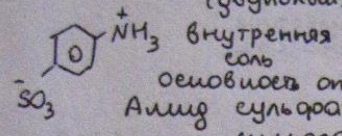 +
NH3 внутренняя
соль
основность
-
SO3 Амид сульфа